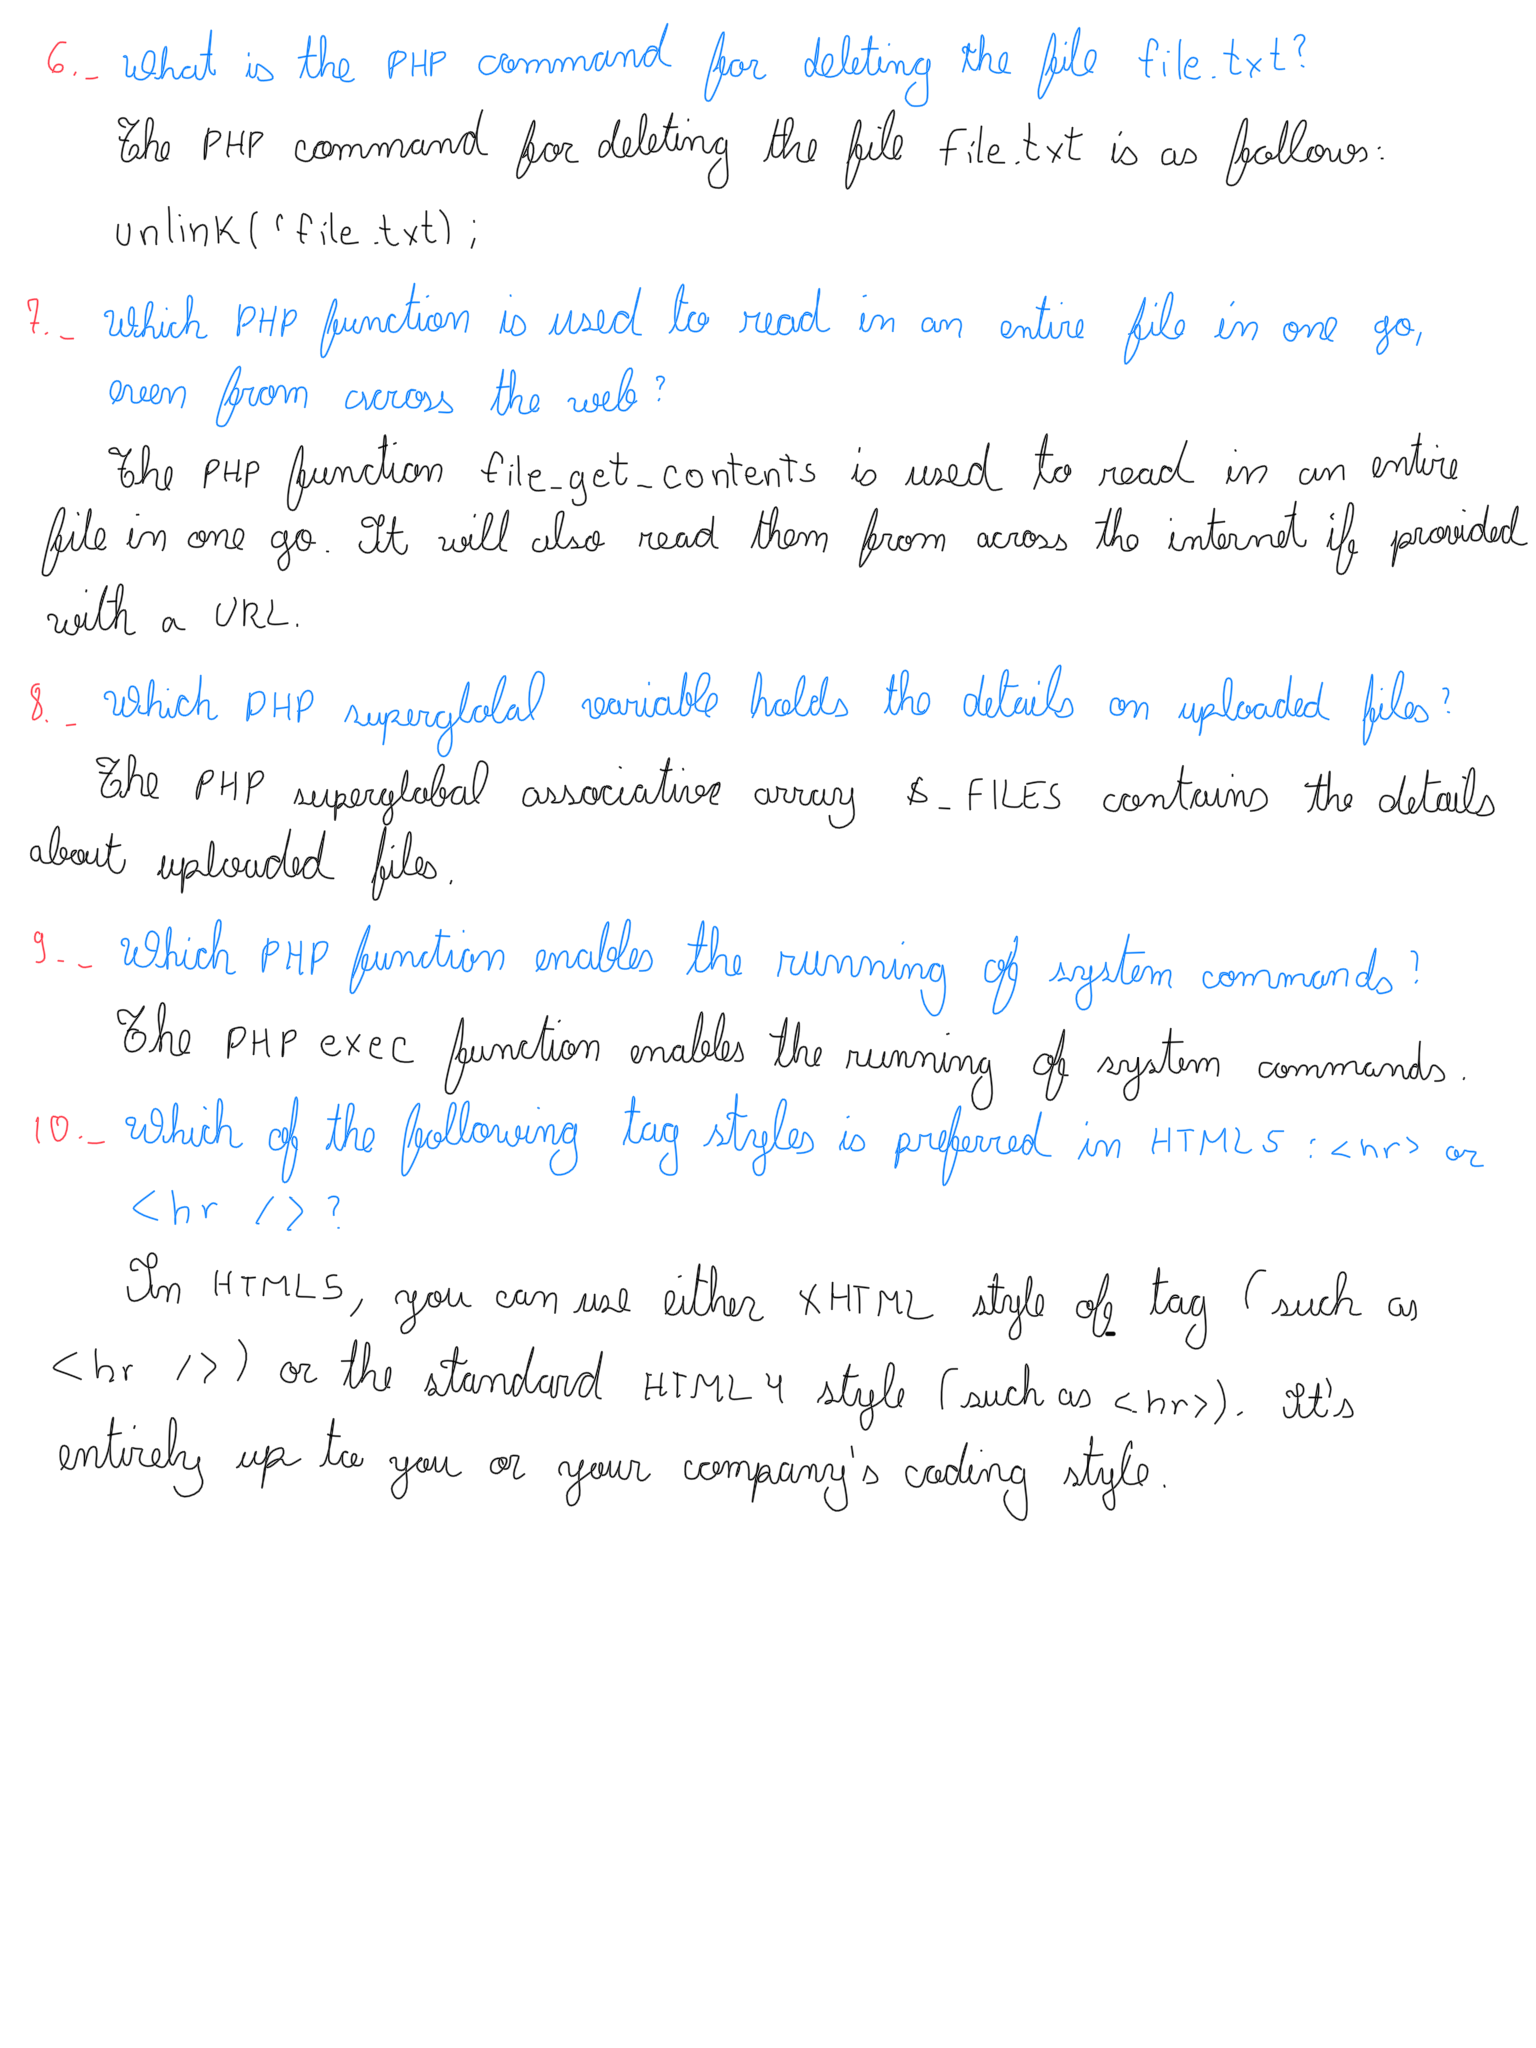 6._ What is the PHP command for deleting the file file.txt?
The PHP command for deleting the file file.txt is as follows:
unlink('file.txt);
7._ Which PHP function is used to read in an entire file in one go,
even from across the web?
The PHP function file_get_contents is used to read in an entire
file in one go. It will also read them from across the internet if provided
with a URL.
8._ Which PHP superglobal variable holds the details on uploaded files?
The PHP superglobal associative array $_FILES contains the details
about uploaded files.
9._ Which PHP function enables the running of system commands?
The PHP exec function enables the running of system commands.
10._ Which of the following tag styles is preferred in HTML5: <hr> or
<hr />?
In HTML5, you can use either XHTML style of tag (such as
<hr />) or the standard HTML4 style (such as <hr>). It's
entirely up to you or your company's coding style.